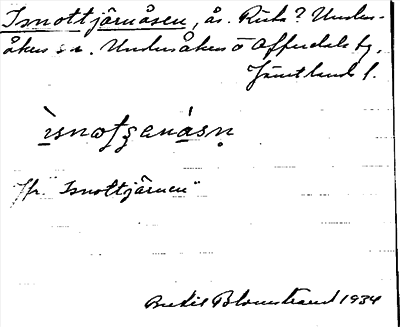 Isnottjärnåsen, ås. Ruta? Under-
åkers sn. Undersåkers o Offerdals tg.
Jämtlands l.
ìsnoʈʂenásn̥
Jfr "Isnottjärnen"
Bertil Blomstrand 1934